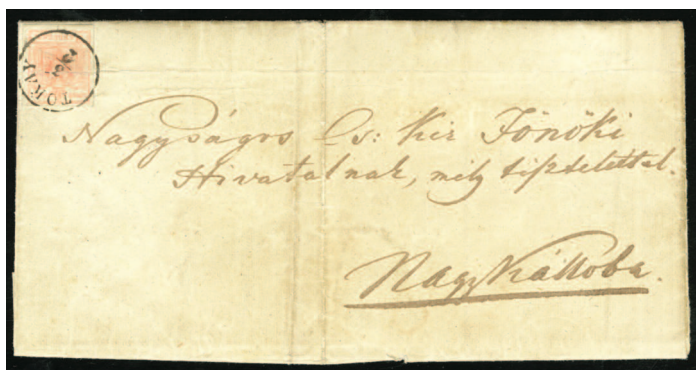 TOKAJ
Nagyságos Cs: Kir Főnöki
Hivatalnak, mély tisztelettel.
Nagy Kállóba.